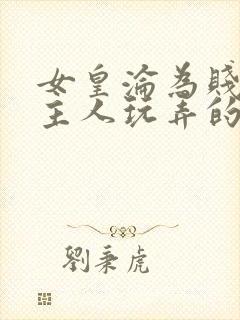 女皇淪為賤
主人玩弄的
劉秉虎